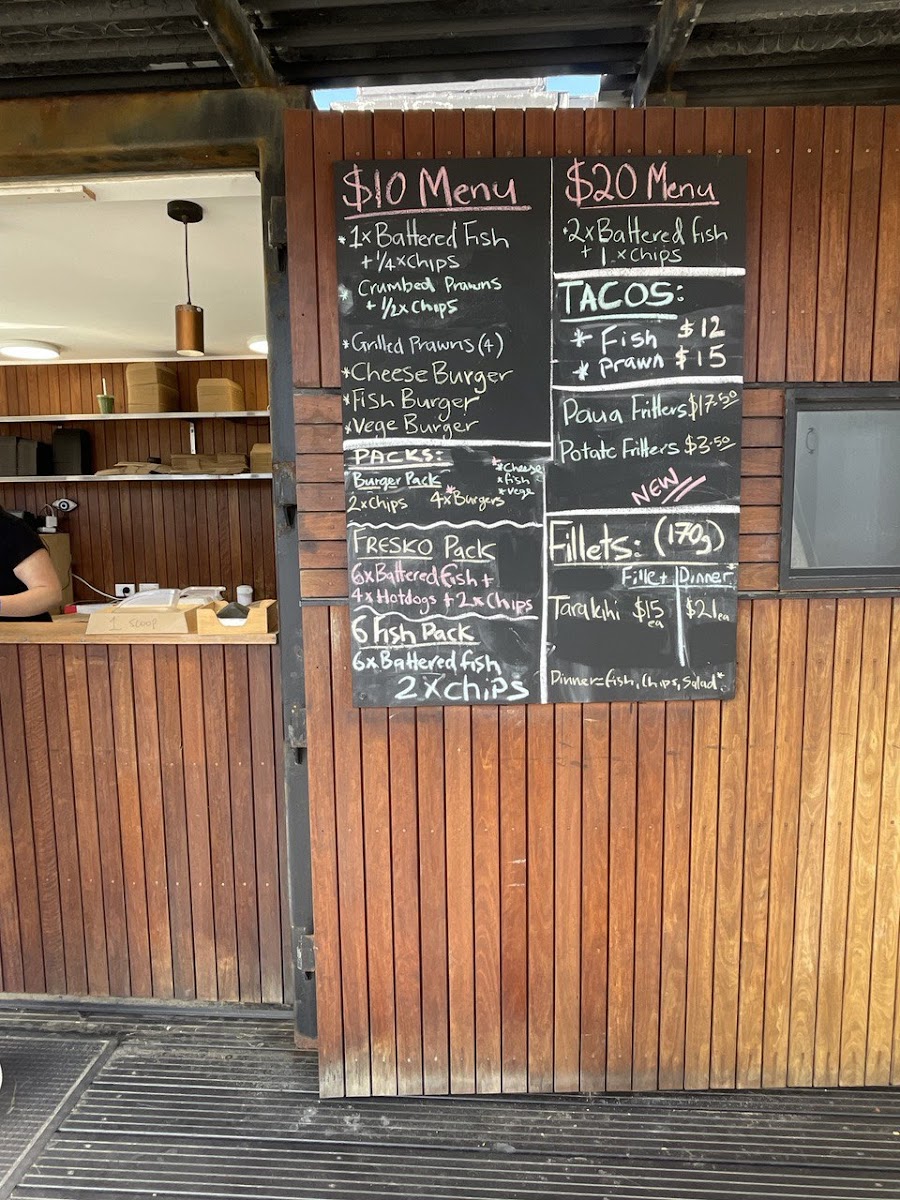 $10 Menu
*1x Battered Fish
+ 1/4 x Chips
* Crumbed Prawns
+ 1/2 x Chips
*Grilled Prawns (4)
*Cheese Burger
*Fish Burger
*Vege Burger
PACKS:
Burger Pack
2xChips 4xBurgers
*Cheese
*fish
*Vege
FRESKO Pack
6xBattered fish +
4xHotdogs + 2xChips
6 fish Pack
6xBattered fish
2xchips
$20 Menu
*2xBattered fish
+ 1 x Chips
TACOS:
* Fish $12
* prawn $15
Paua Fritters $17.50
Potato Fritters $3.50
NEW
Fillets: (170g)
Fillet Dinner
Tarakihi $15 ea $21 ea
Dinner=fish, Chips, Salad*
1 SCOOP